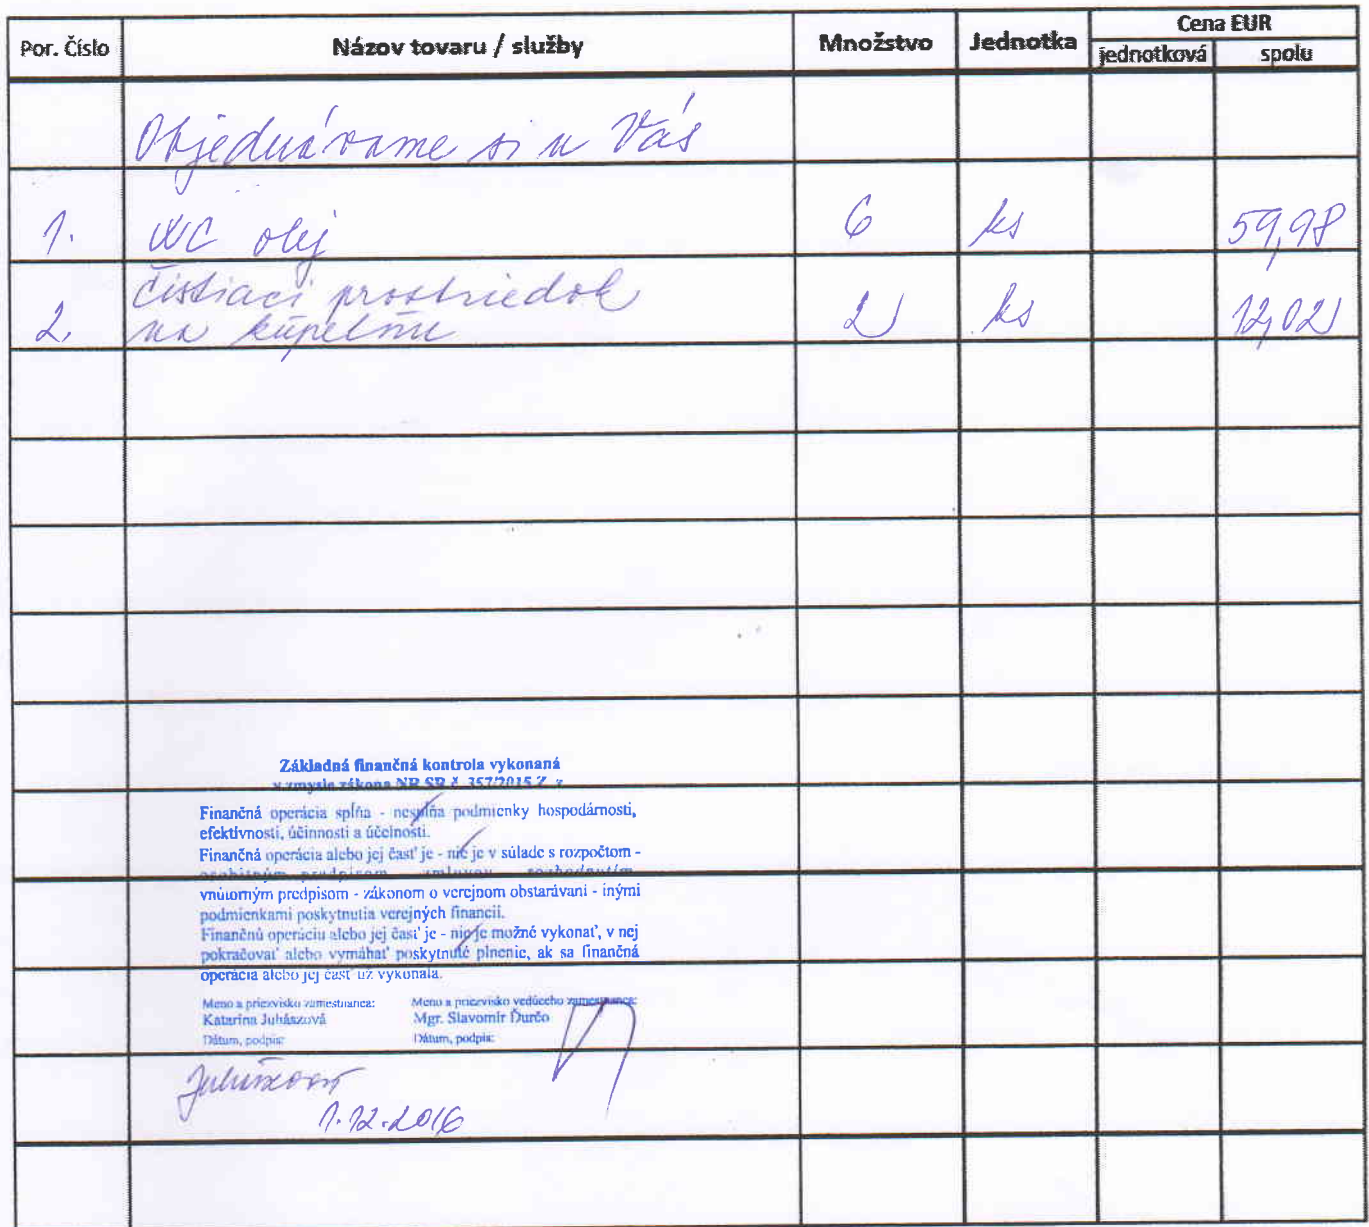 Por. Číslo Názov tovaru / služby Množstvo Jednotka Cena EUR
jednotková spolu
Objednávame si u Vás
1. WC olej 6 ks 59,98
čistiaci prostriedok
2. na kúpeľňu 2 ks 12,02
Základná finančná kontrola vykonaná
v zmysle zákona NR SR č. 357/2015 Z. z.
Finančná operácia spĺňa - nespĺňa podmienky hospodárnosti,
efektívnosti, účinnosti a účelnosti.
Finančná operácia alebo jej časť je - nie je v súlade s rozpočtom -
osobitným predpisom zmluvou rozhodnutím
vnútorným predpisom - zákonom o verejnom obstarávaní - inými
podmienkami poskytnutia verejných financií.
Finančnú operáciu alebo jej časť je - nie je možné vykonať, v nej
pokračovať alebo vymáhať poskytnuté plnenie, ak sa finančná
operácia alebo jej časť už vykonala.
Meno a priezvisko zamestnanca: Meno a priezvisko vedúceho zamestnanca:
Katarína Juhászová Mgr. Slavomír Ďurčo
Dátum, podpis: Dátum, podpis:
1.12.2016